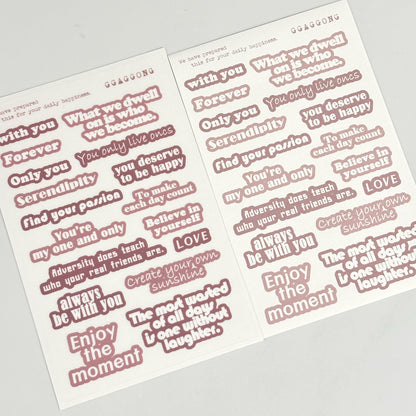 We have prepared
this for your daily happiness.
GGAGGONG
with you
What we dwell
on is who
we become.
Forever
Only you
You only live onos
Serendipity
you deserve
to be happy
find your passion
To make
each day count
You're
my one and only
Believe in
yourself
Adversity does teach
who your real friends are.
LOVE
always
be with you
Create your own
sunshine
Enjoy
the
moment
The most wasted
of all days
is one without
laughter.
We have prepared
this for your daily happiness.
GGAGGONG
with you
What we dwell
on is who
we become.
Forever
Only you
You only live onos
Serendipity
you deserve
to be happy
find your passion
To make
each day count
You're
my one and only
Believe in
yourself
Adversity does teach
who your real friends are.
LOVE
always
be with you
Create your own
sunshine
Enjoy
the
moment
The most wasted
of all days
is one without
laughter.